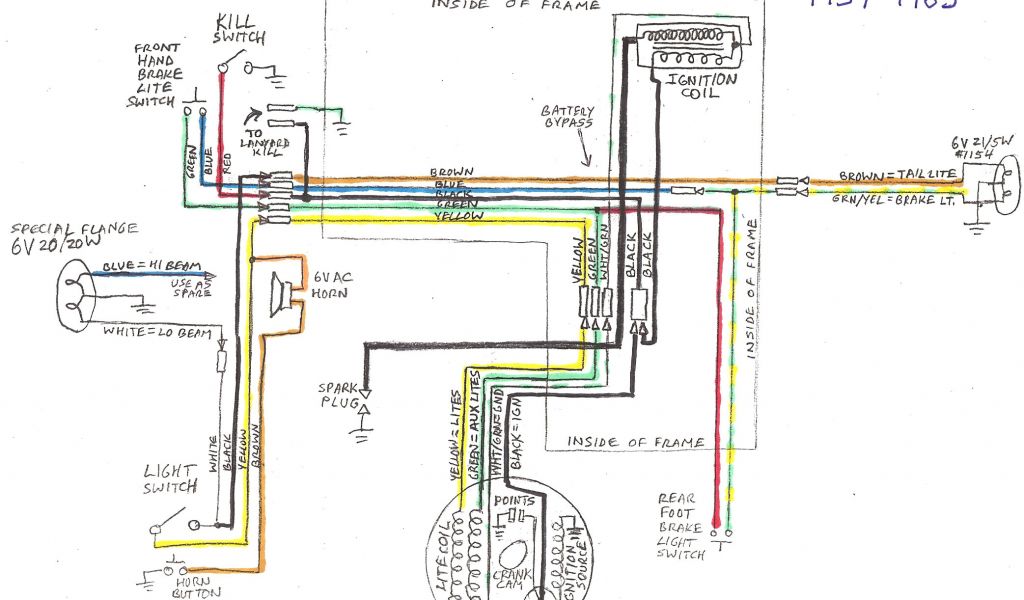 INSIDE OF FRAME
1959-1965
KILL
SWITCH
FRONT
HAND
BRAKE
LITE
SWITCH
IGNITION
COIL
BATTERY
BYPASS
TO
LANYARD
KILL
GREEN
BLUE
RED
BROWN
BLUE
BLACK
GREEN
YELLOW
6V 21/5W
#1154
BROWN = TAIL LITE
GRN/YEL = BRAKE LT.
SPECIAL FLANGE
6V 20/20W
BLUE = HI BEAM
USE AS
SPARE
WHITE = LO BEAM
6VAC
HORN
YELLOW
GREEN
WHT/GRN
BLACK
BLACK
INSIDE OF FRAME
SPARK
PLUG
YELLOW = LITES
GREEN = AUX LITES
WHT/GRN = GND
BLACK = IGN
INSIDE OF FRAME
WHITE
BLACK
YELLOW
BROWN
LIGHT
SWITCH
POINTS
REAR
FOOT
BRAKE
LIGHT
SWITCH
LITE COIL
CRANK
CAM
IGNITION
SOURCE
HORN
BUTTON